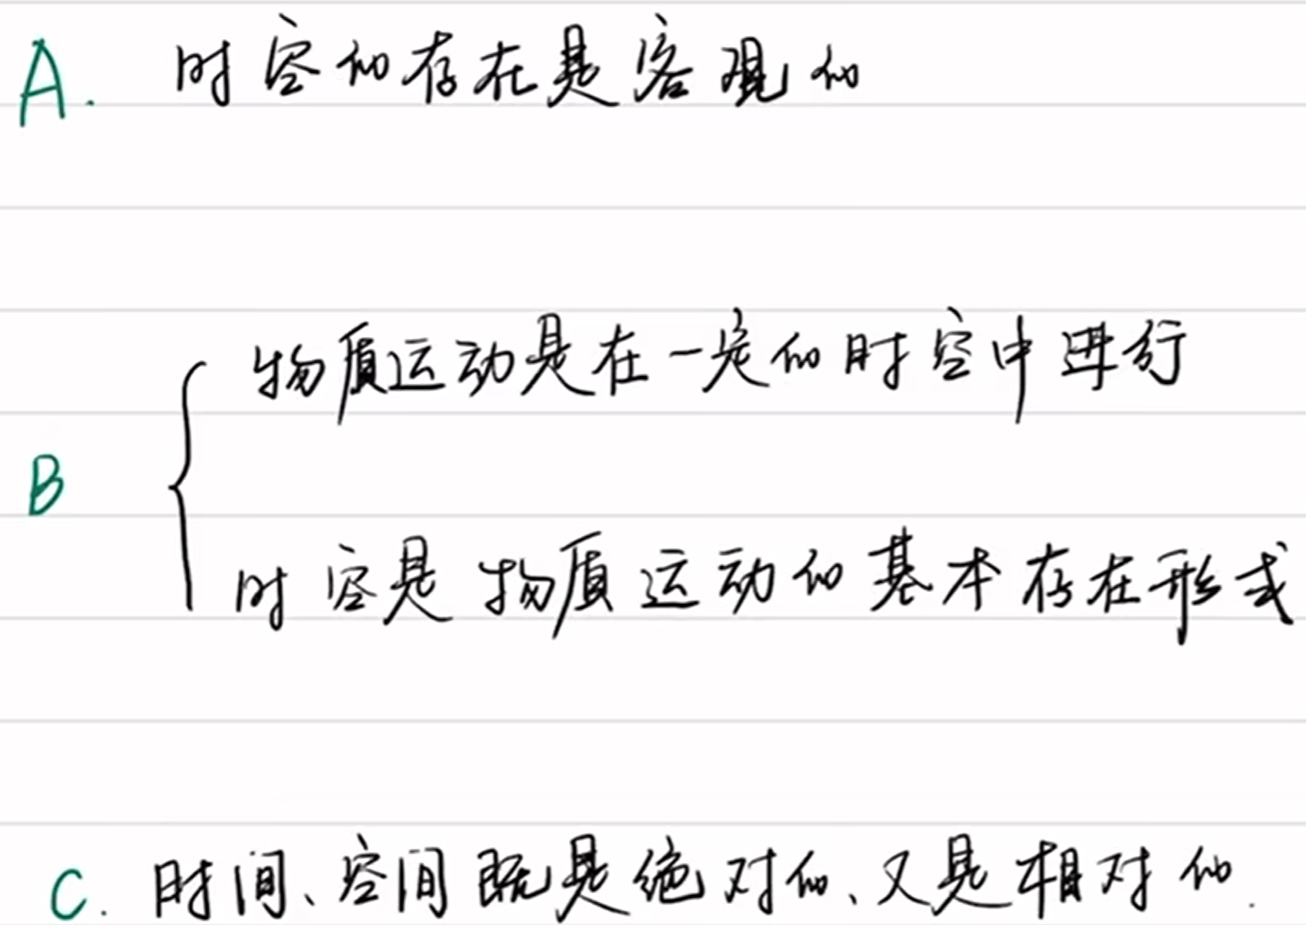 A. 时空的存在是客观的
物质运动是在一定的时空中进行
B
时空是物质运动的基本存在形式
C. 时间、空间既是绝对的、又是相对的.